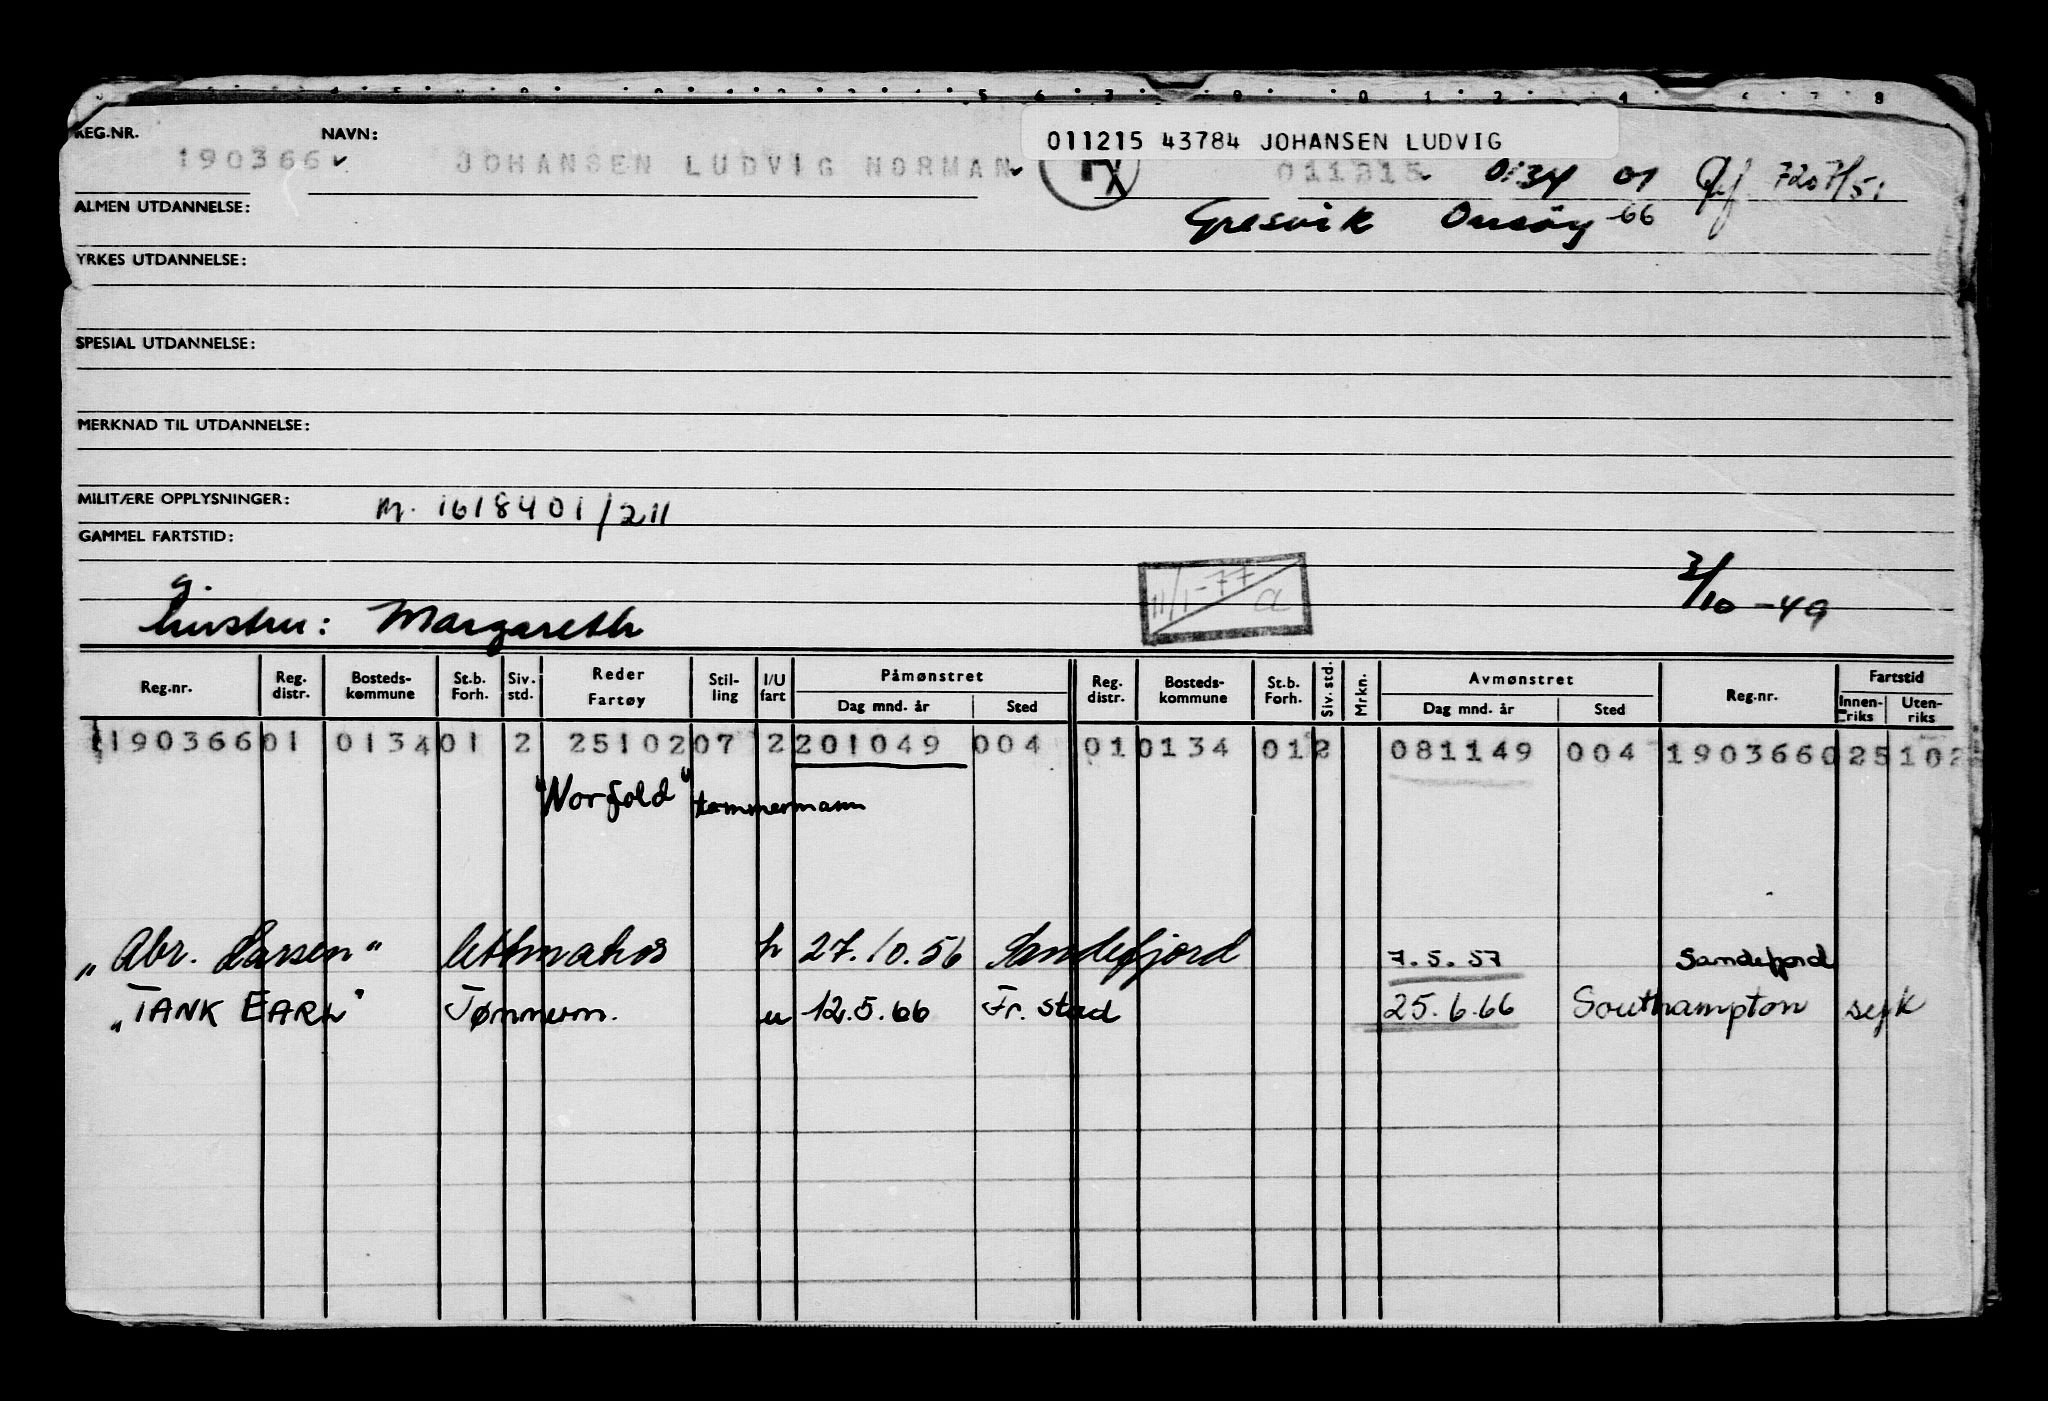 REG.NR. NAVN: 011215 43784 JOHANSEN LUDVIG
190366 JOHANSEN LUDVIG NORMAN 011215 0134 01 7207/51
ALMEN UTDANNELSE: Gresvik Onsöy -66
YRKES UTDANNELSE:
SPESIAL UTDANNELSE:
MERKNAD TIL UTDANNELSE:
MILITÆRE OPPLYSNINGER: M. 1618401/211
GAMMEL FARTSTID:
g. 11/1-77 a 3/10-49
hustru: Margareth
Reg.nr. Reg. distr. Bosteds-kommune St.b. Forh. Siv. std. Reder Fartøy Stil-ling I/U fart Påmønstret Dag mnd. år Sted Reg. distr. Bosteds-kommune St.b. Forh. Siv. std. Mrkn. Avmønstret Dag mnd. år Sted Reg.nr. Fartstid Innen-riks Uten-riks
190366 01 0134 01 2 25102 07 2 201049 004 01 0134 01 2 081149 004 190366 025 102
"Norfold" tømmermann
"Abr. Larsen" h 27.10.56 Sandefjord 7.5.57 Sandefjord
"TANK EARL" Tømmerm. u 12.5.66 Fr.stad 25.6.66 Southampton syk